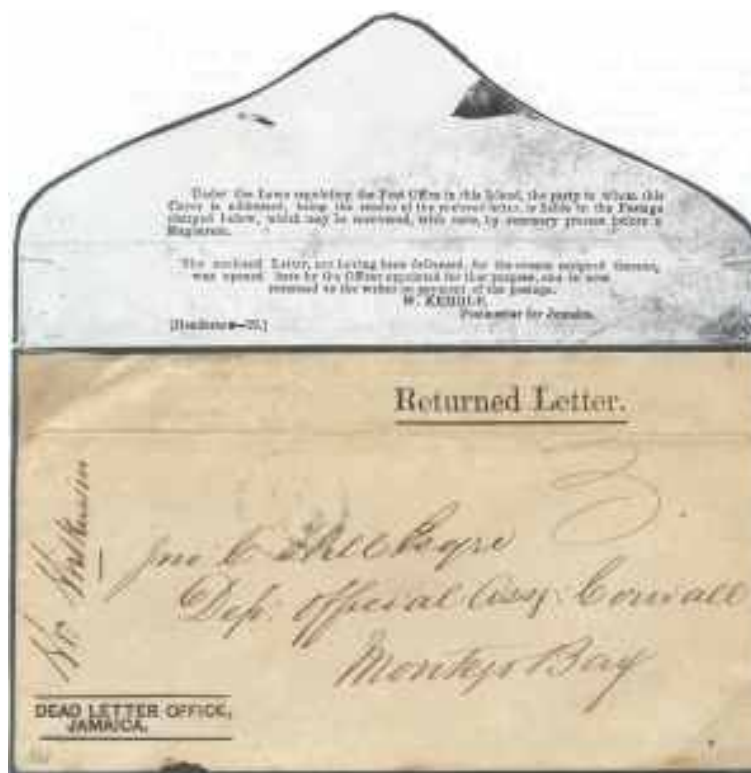 Under the Laws regulating the Post Office in this Island, the party to whom this
Cover is addressed, being the sender of the enclosed letter, is liable to the Postage
charged below, which may be recovered, with costs, by summary process before a
Magistrate.
The enclosed Letter, not having been delivered, for the reason assigned thereon,
was opened here by the Officer appointed for that purpose, and is now
returned to the writer on payment of the postage.
W. KEMBLE,
Postmaster for Jamaica.
Returned Letter.
3
Jno C Esqre
Dep. Official Assg. Cornwall
Montego Bay
DEAD LETTER OFFICE,
JAMAICA.